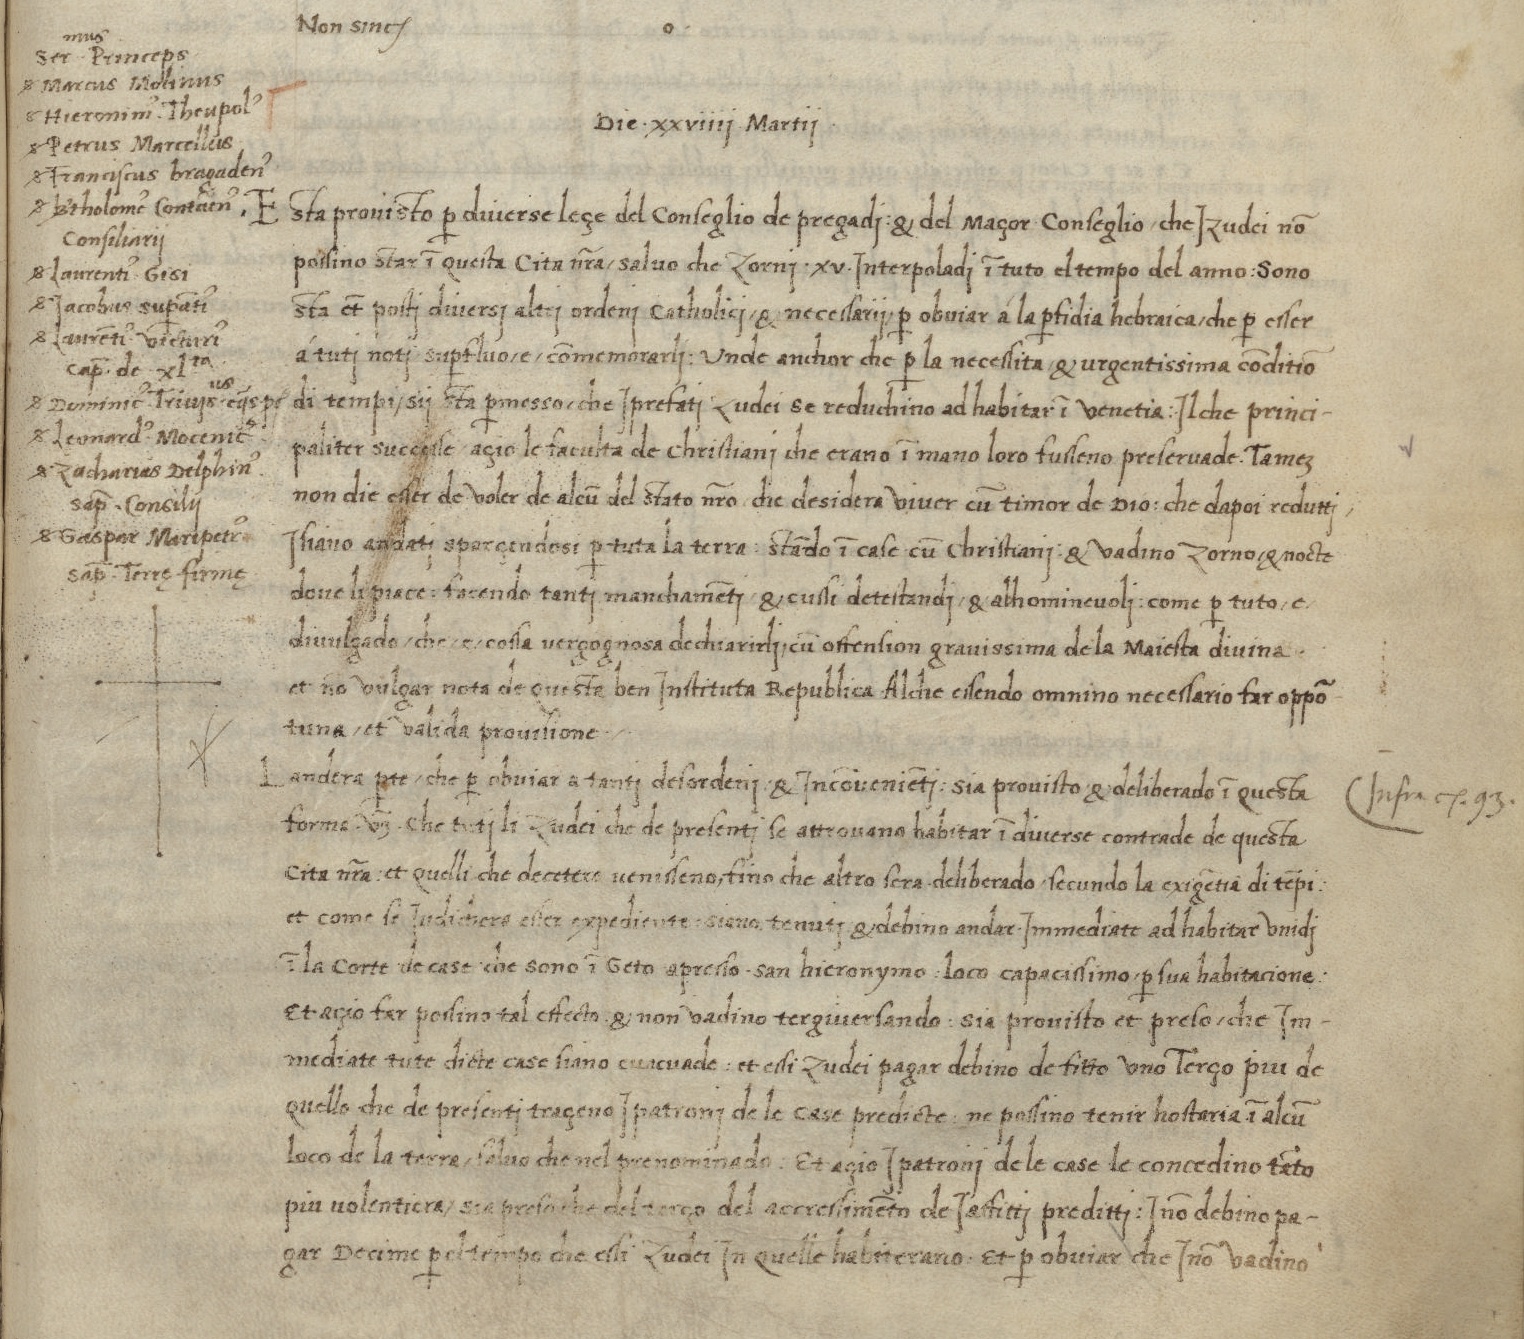 Non sinc
o
mus
Ser. Princeps
Marcus Molinus
Hieronim9. Theupol9
Petrus Marcellus
Franciscus bragaden9
Btholome9 Contaren9
Consiliarij
Laurenti9 Gisi
Jacobus supāti9
Laurēti9 victuri9
Cap. de xlta
Dominic9 Trivis9 eqs
Leonard9 Mocenic9
Zacharias Delphin9
sap. Consilij
Gaspar Maripetr9
sap. Terrę firmę
Die xxviiij Martij
Esta provisto p diverse leçe del Conseglio de pregadj: & del Maçor Conseglio / che J Zudei nō
possino star ī questa Cita nr̄a / salvo che Zornj xv. Interpoladj ī tuto el tempo del anno: Sono
sta et postj diversi altri ordenj Catholici / & necessarij p obviar á la pfidia hebraica / che p esser
á tutj notj supfluo / e / cōmemorarlj: Unde anchor che p la necessita / & urgentissima cōditiō
di tempi / sij sta pmesso / che J prefatj Zudei se reduchino ad habitar ī Venetia: Il che princi-
paliter successe / açio le faculta de Christianj che erano ī mano loro fusseno preservade. Tamez
non die esser de voler de alcū del stato nr̄o / che desidera viver cū timor de Dio: che dapoi reduttj /
Jsiano andatj sparçendosi p tuta la terra: stādo ī case cū Christianj: & vadino Zorno / & nocte
dove li piace: facendo tantj manchamētj / & cussi detestandj / & abhominevolj: come p tuto / e /
divulgado / che / e / cossa vergognosa dechiarirlj / cū offension gravissima de la Maiesta divina.
et nō vulgar nota de questa ben Instituta Republica Alche essendo omnino necessario far oppō
tuna / et valida provisione.
Landera pte / che p obviar a tantj desordenj & Incōveniētj: sia provisto & deliberado ī questa
forma. vz. Che tutj li Zudei che de presentj se attrovano habitar ī diverse contrade de questa
Cita nr̄a: et quelli che decetero venisseno, fino che altro sera deliberado / secundo la exigētia di tēpi:
et come se Judichera esser expediente: siano tenutj & debino andar Immediate ad habitar Unidj
ī la Corte de case che sono ī Geto apresso san hieronymo: loco capacissimo / p sua habitacione:
Et açio far possino tal effecto & non vadino tergiversando: sia provisto et preso / che Im-
mediate tute dicte case siano evacuade: et essi Zudei pagar debino de fitto uno Terço piu de
quello che de presentj traçeno J patronj de le Case predicte: ne possino tenir hostaria ī alcū
loco de la terra / salvo che nel prenominado: Et açio J patronj de le case le concedino tāto
piu volentiera / sia preso che del terço del accressimēto de J affittj predittj: J nō debino pa-
gar Decime p el tempo che essi Zudei In quelle habiterano. Et p obviar che J nō vadino
Infra c. 93.